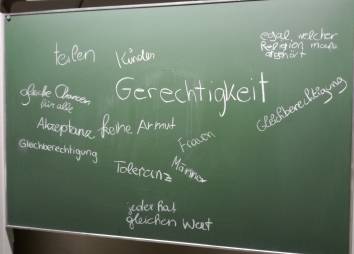 egal welcher
Religion man
angehört
teilen
Kinder
Gerechtigkeit
gleiche Chancen
für alle
Gleichberechtigung
Akzeptanz
keine Armut
Frauen
Männer
Gleichberechtigung
Toleranz
jeder hat
gleichen Wert